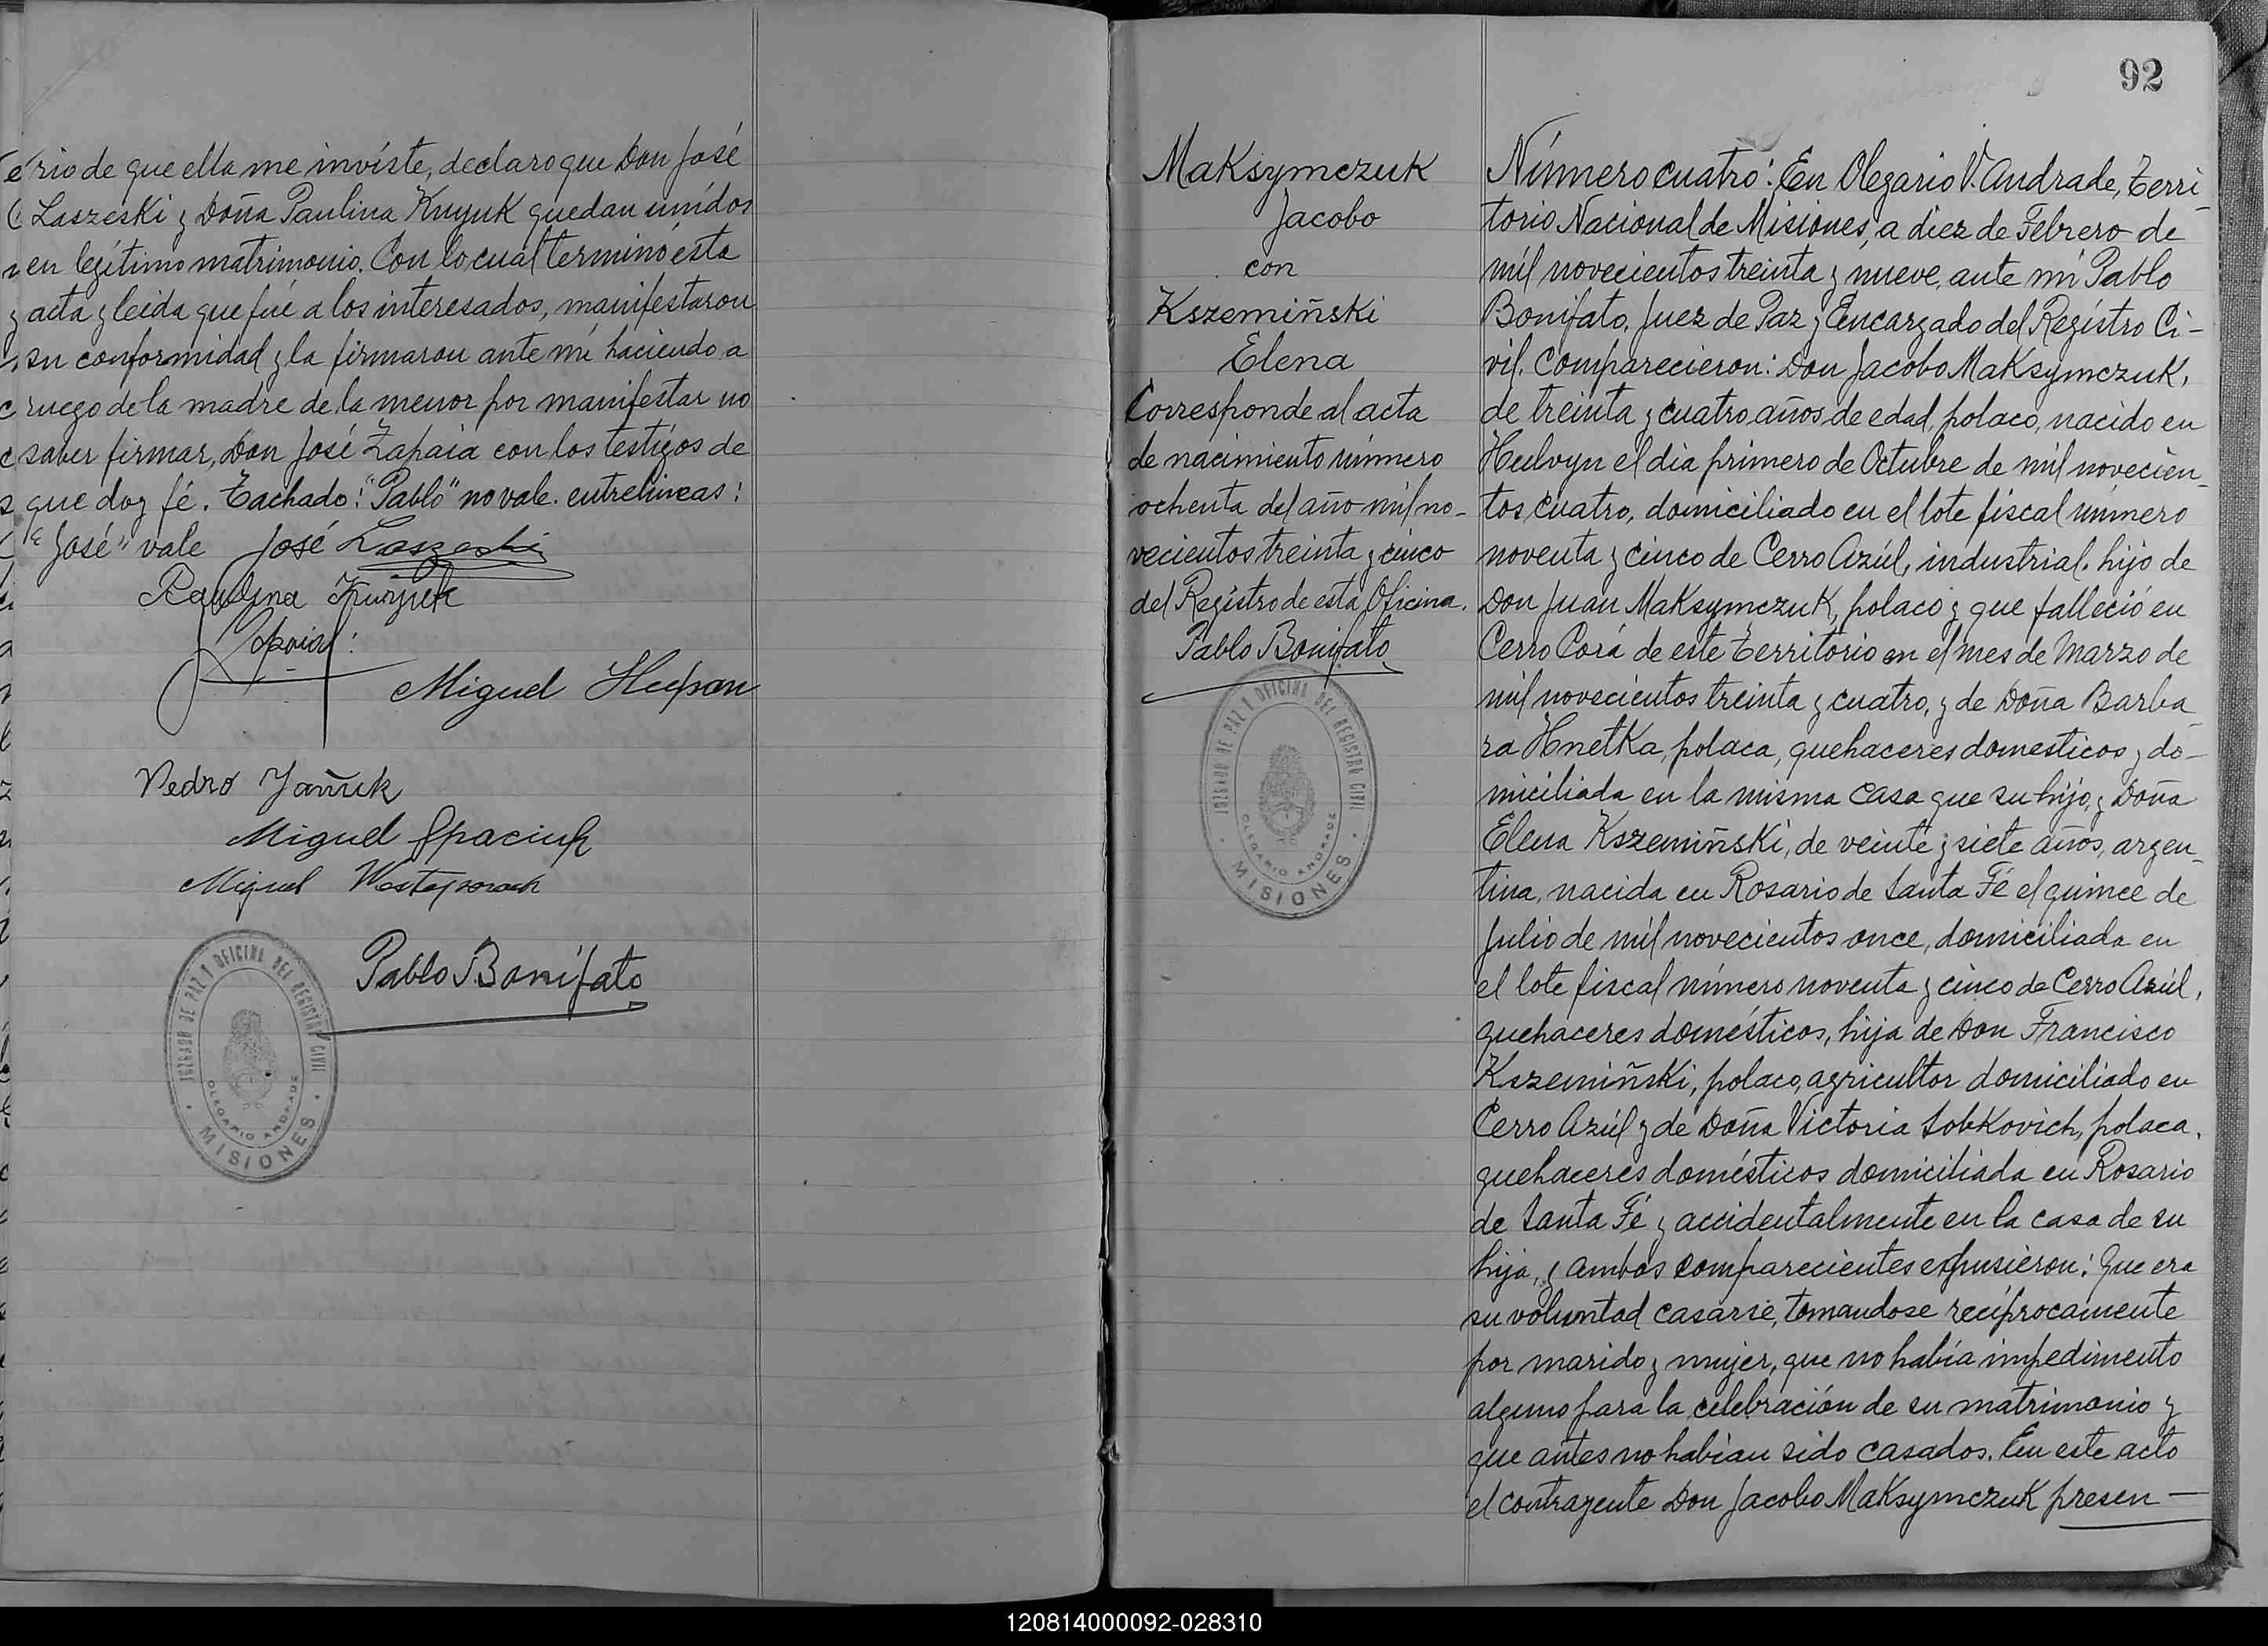 rio de que ella me inviste, declaro que Don José
Laszeski y Doña Paulina Knyuk quedan unidos
en legítimo matrimonio. Con lo cual terminó ésta
acta y leida que fué a los interesados, manifestaron
su conformidad y la firmaron ante mí haciendo a
ruego de la madre de la menor por manifestar no
saber firmar, Don José Zapaia con los testigos de
que doy fé. Tachado: "Pablo" no vale. entrelineas:
"José" vale José Laszeski
Paulina
Miguel
Pedro Jañuk
Miguel Spaciuk
Miguel
Pablo Bonifato
JUZGADO DE PAZ Y OFICINA DEL REGISTRO CIVIL
OLEGARIO ANDRADE
MISIONES
92
Maksymczuk
Jacobo
con
Kszemiñski
Elena
Corresponde al acta
de nacimiento número
ochenta del año mil no-
vecientos treinta y cinco
del Registro de esta Oficina.
Pablo Bonifato
JUZGADO DE PAZ Y OFICINA DEL REGISTRO CIVIL
OLEGARIO ANDRADE
MISIONES
Número cuatro: En Olegario V. Andrade, Terri-
torio Nacional de Misiones, a diez de Febrero de
mil novecientos treinta y nueve, ante mí Pablo
Bonifato, Juez de Paz y Encargado del Registro Ci-
vil. Comparecieron: Don Jacobo Maksymczuk,
de treinta y cuatro años de edad, polaco, nacido en
Hulvyn el dia primero de Octubre de mil novecien-
tos cuatro, domiciliado en el lote fiscal número
noventa y cinco de Cerro Azúl, industrial, hijo de
Don Juan Maksymczuk, polaco y que falleció en
Cerro Corá de este Territorio en el mes de Marzo de
mil novecientos treinta y cuatro, y de Doña Barba-
ra Hnetka, polaca, quehaceres domesticos y do-
miciliada en la misma casa que su hijo, y Doña
Elena Kszemiñski, de veinte y siete años, argen-
tina, nacida en Rosario de Santa Fé el quince de
Julio de mil novecientos once, domiciliada en
el lote fiscal número noventa y cinco de Cerro Azúl,
quehaceres domésticos, hija de Don Francisco
Kszemiñski, polaco, agricultor domiciliado en
Cerro Azúl y de Doña Victoria Sobkovich, polaca,
quehaceres domésticos domiciliada en Rosario
de Santa Fé y accidentalmente en la casa de su
hija, y ambos comparecientes expusieron: Que era
su voluntad casarse, tomandose recíprocamente
por marido y mujer, que no había impedimento
alguno para la celebración de su matrimonio y
que antes no habían sido casados. En este acto
el contrayente Don Jacobo Maksymczuk presen-
120814000092-028310